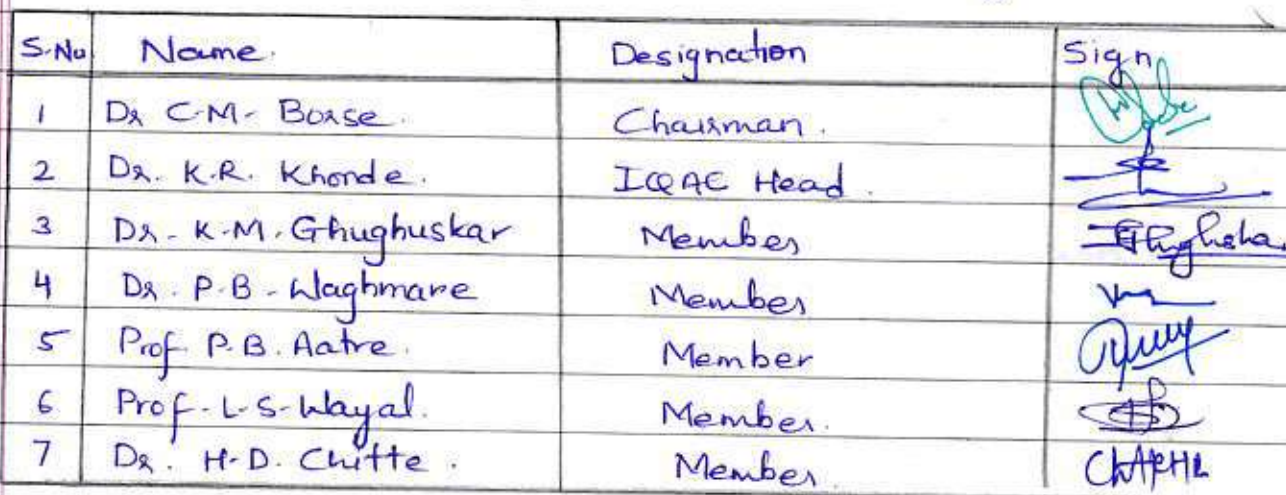 S.No Name. Designation Sign
1 Dr C.M. Borse. Chairman.
2 Dr. K.R. Khonde. IQAC Head.
3 Dr. K.M. Ghughuskar Member
4 Dr. P.B. Waghmare Member
5 Prof. P.B. Aatre. Member
6 Prof. L.S. Wayal. Member.
7 Dr. H.D. Chitte. Member